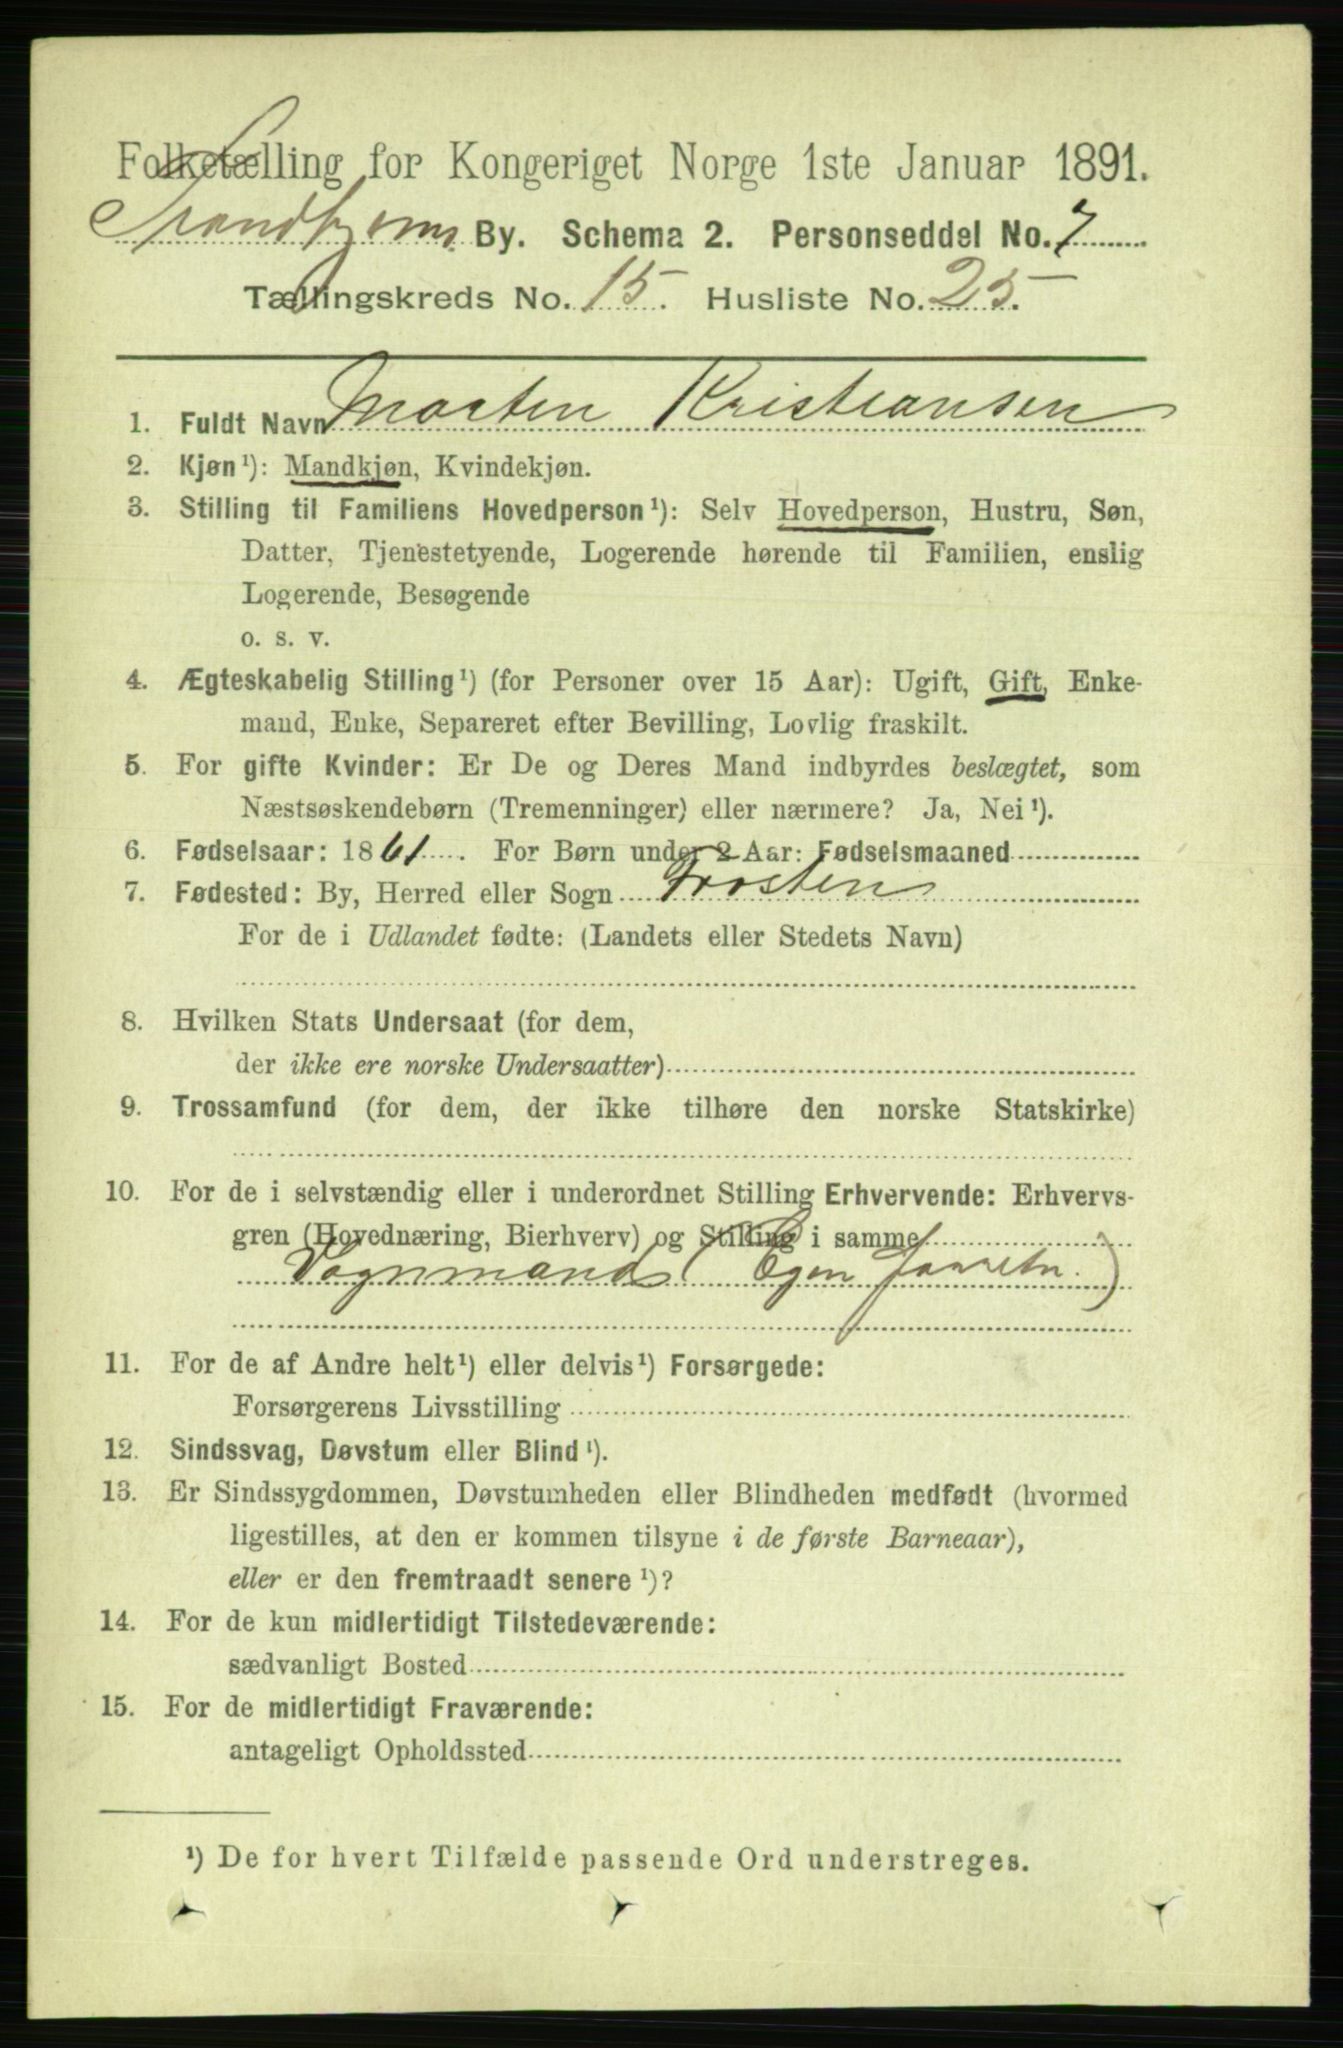 Folketælling for Kongeriget Norge 1ste Januar 1891.
Trondhjems By. Schema 2. Personseddel No. 7
Tællingskreds No. 15. Husliste No. 25.
1. Fuldt Navn Morten Kristiansen
2. Kjøn¹): Mandkjøn, Kvindekjøn.
3. Stilling til Familiens Hovedperson¹): Selv Hovedperson, Hustru, Søn,
Datter, Tjenestetyende, Logerende hørende til Familien, enslig
Logerende, Besøgende
o. s. v.
4. Ægteskabelig Stilling¹) (for Personer over 15 Aar): Ugift, Gift, Enke-
mand, Enke, Separeret efter Bevilling, Lovlig fraskilt.
5. For gifte Kvinder: Er De og Deres Mand indbyrdes beslægtet, som
Næstsøskendebørn (Tremenninger) eller nærmere? Ja, Nei¹).
6. Fødselsaar: 1861. For Børn under 2 Aar: Fødselsmaaned
7. Fødested: By, Herred eller Sogn Frosten
For de i Udlandet fødte: (Landets eller Stedets Navn)
8. Hvilken Stats Undersaat (for dem,
der ikke ere norske Undersaatter)
9. Trossamfund (for dem, der ikke tilhøre den norske Statskirke)
10. For de i selvstændig eller i underordnet Stilling Erhvervende: Erhvervs-
gren (Hovednæring, Bierhverv) og Stilling i samme
Vognmand (Egen )
11. For de af Andre helt¹) eller delvis¹) Forsørgede:
Forsørgerens Livsstilling
12. Sindssvag, Døvstum eller Blind¹).
13. Er Sindssygdommen, Døvstumheden eller Blindheden medfødt (hvormed
ligestilles, at den er kommen tilsyne i de første Barneaar),
eller er den fremtraadt senere¹)?
14. For de kun midlertidigt Tilstedeværende:
sædvanligt Bosted
15. For de midlertidigt Fraværende:
antageligt Opholdssted
¹) De for hvert Tilfælde passende Ord understreges.